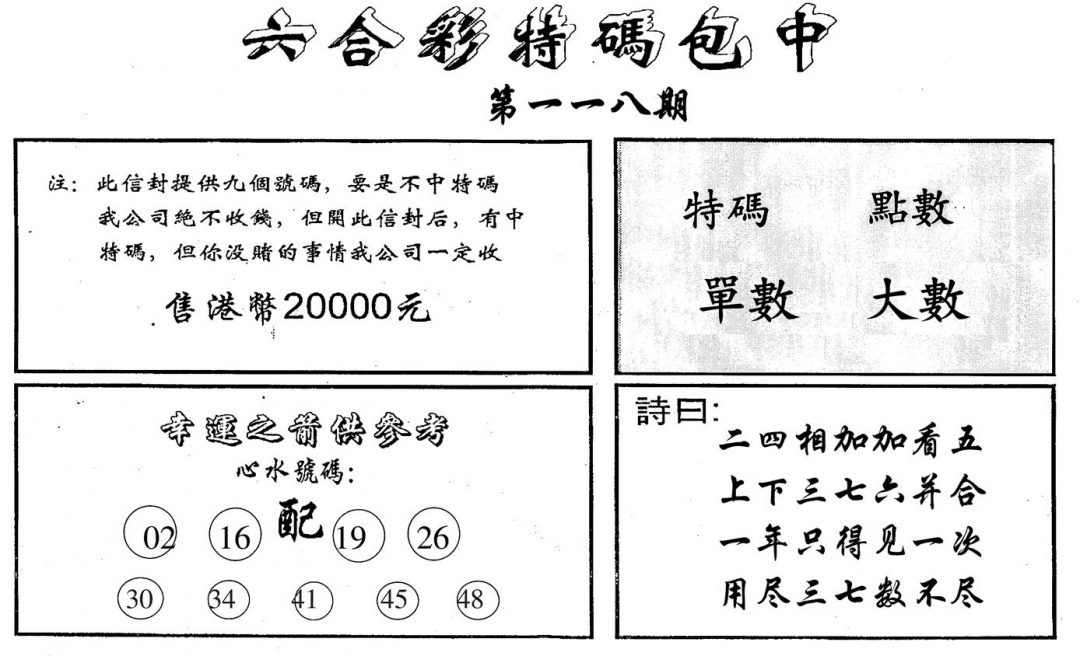 六合彩特碼包中
第一一八期
注：此信封提供九個號碼，要是不中特碼
我公司絕不收錢，但開此信封后，有中
特碼，但你没賭的事情我公司一定收
售港幣20000元
特碼 點數
單數 大數
幸運之箭供參考
心水號碼：
配
02 16 19 26
30 34 41 45 48
詩曰：
二四相加加看五
上下三七六并合
一年只得见一次
用尽三七数不尽